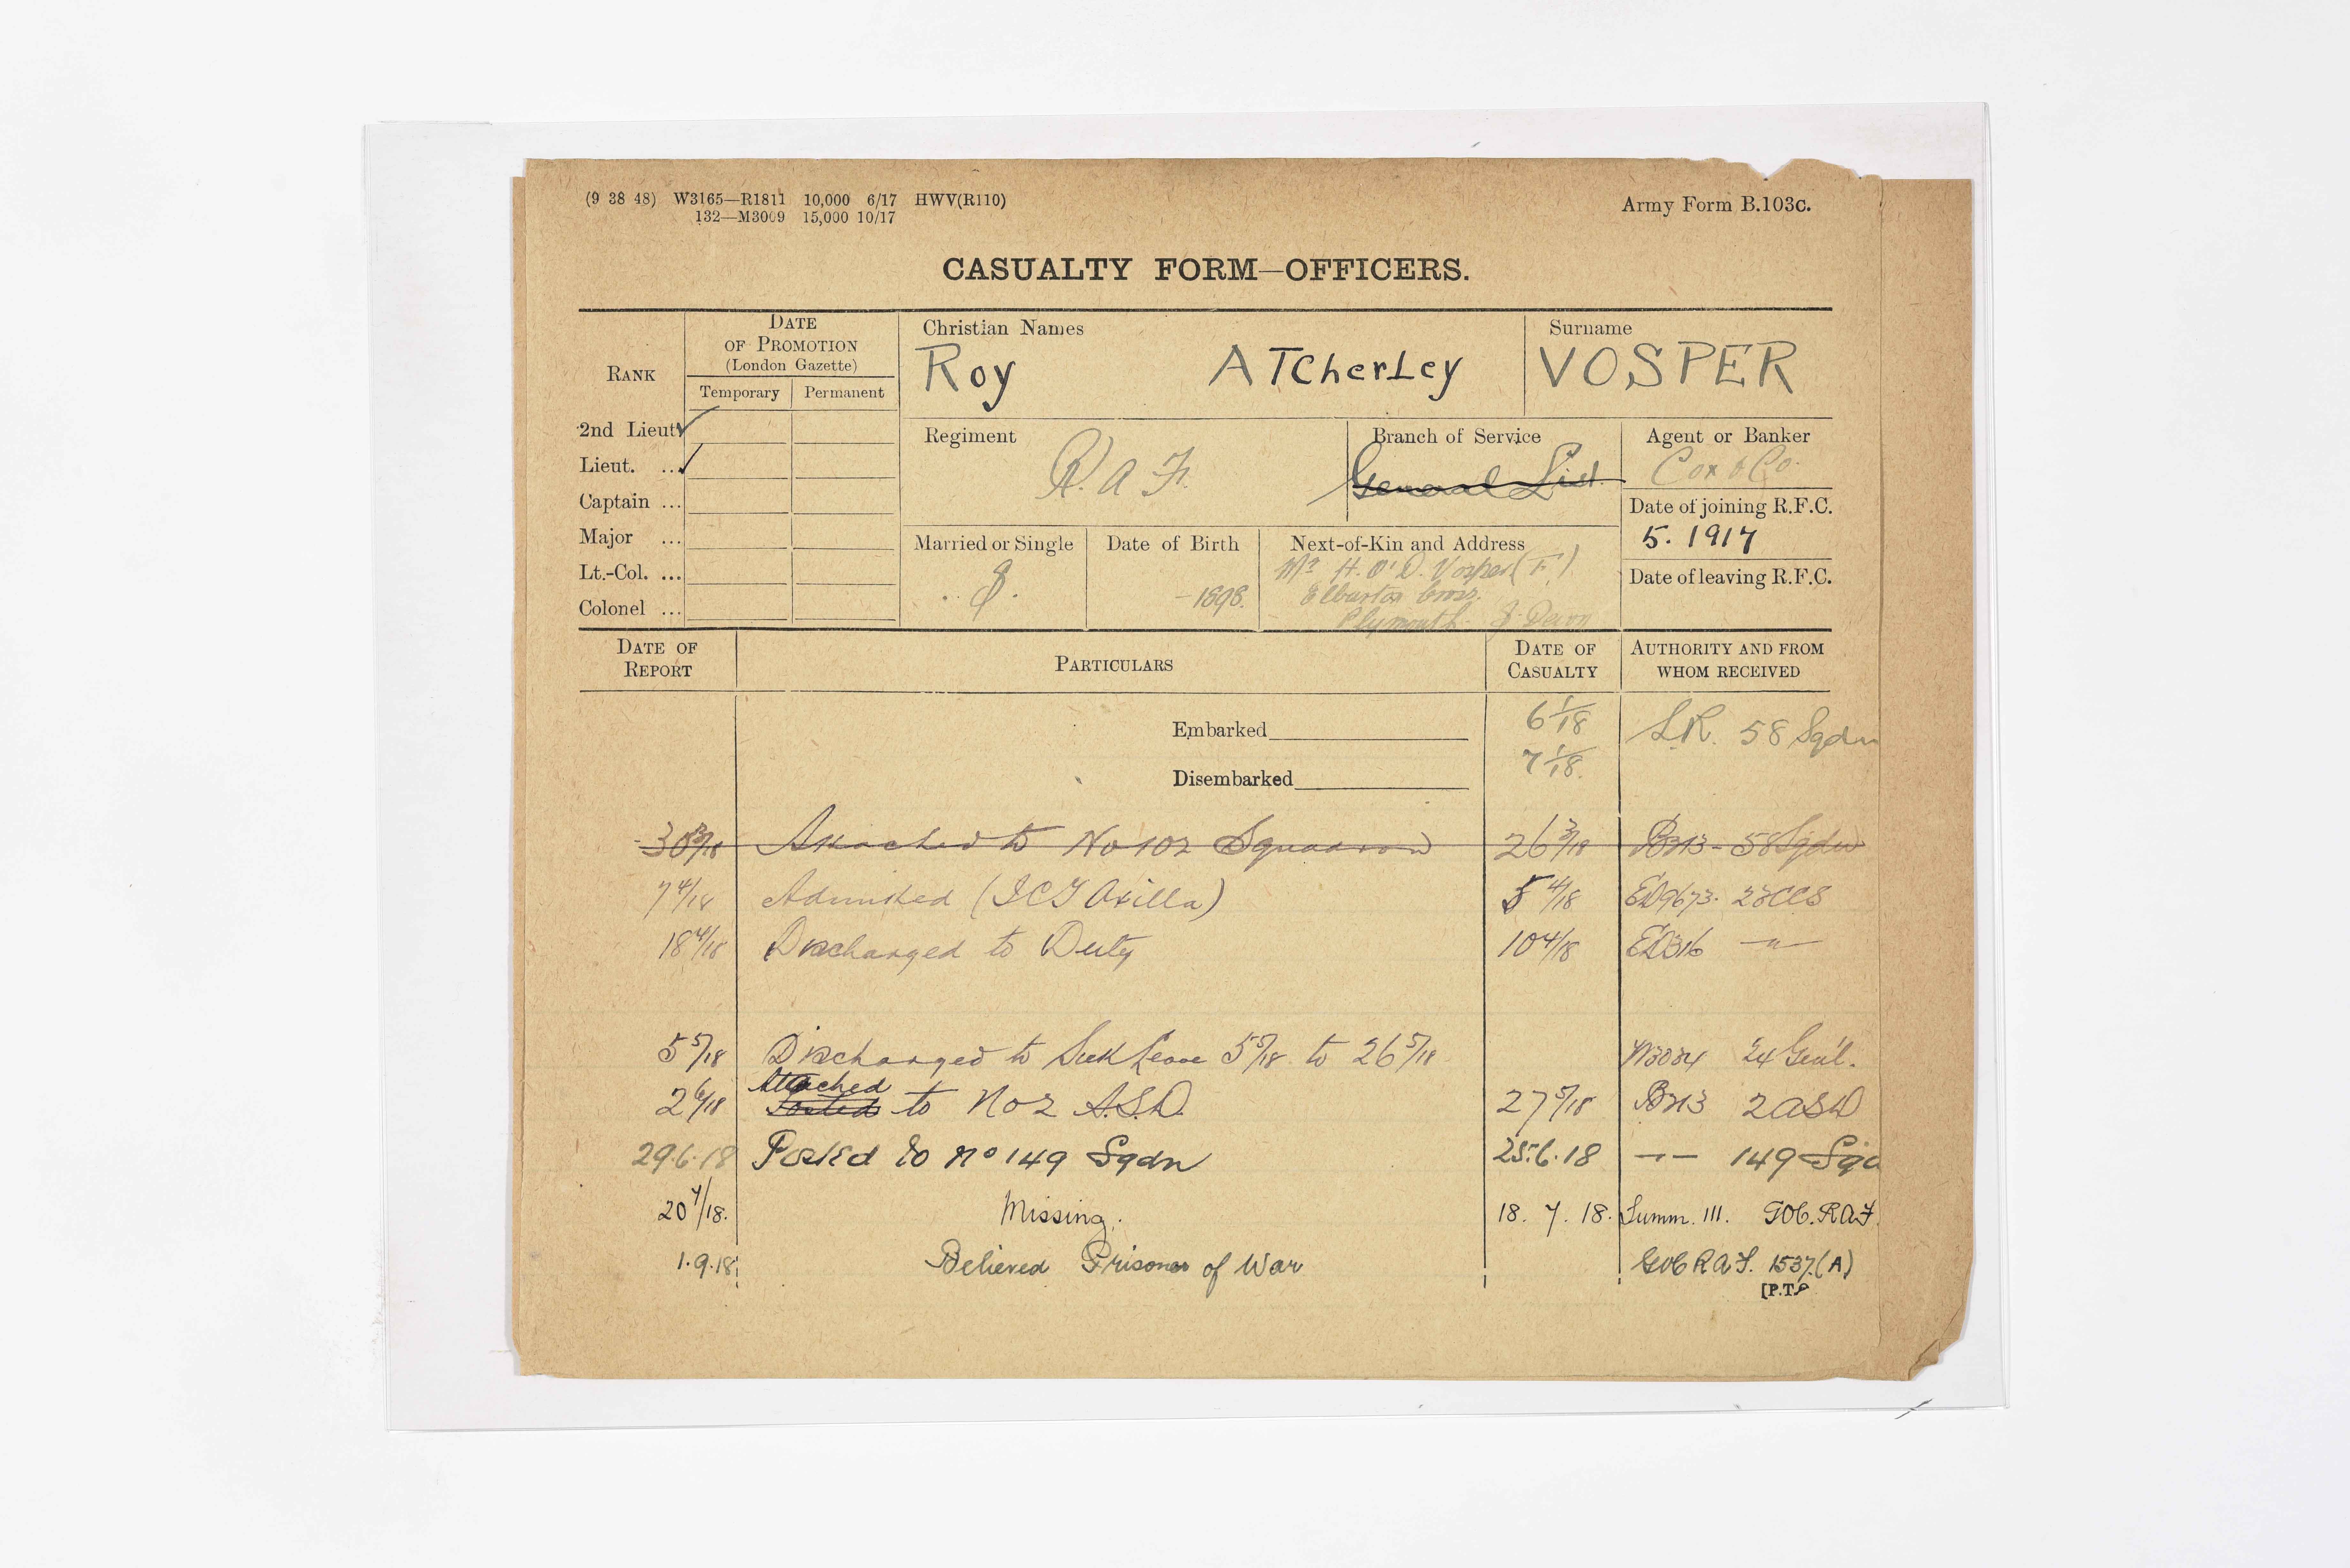 (9 38 48) W3165—R1811 10,000 6/17 HWV(R110)
132—M3009 15,000 10/17
Army Form B.103c.
CASUALTY FORM—OFFICERS.
RANK
DATE OF PROMOTION (London Gazette)
Temporary Permanent
2nd Lieut
Lieut. ...
Captain ...
Major ...
Lt.-Col. ...
Colonel ...
Christian Names
Roy ATCherLey
Surname
VOSPER
Regiment
R.A.F.
Branch of Service
General List
Agent or Banker
Cox & Co.
Date of joining R.F.C.
5. 1917
Date of leaving R.F.C.
Married or Single
S.
Date of Birth
- 1898.
Next-of-Kin and Address
Mr H. O'D. Vosper (F.)
Elburton Cross.
Plymouth. S. Devon
DATE OF REPORT PARTICULARS DATE OF CASUALTY AUTHORITY AND FROM WHOM RECEIVED
Embarked 6 1/18 S.R. 58 Sqdn
Disembarked 7 1/18.
30 3/18 Attached to No 102 Squadron 26 3/18 B213 - 58 Sqdn
7 4/18 Admitted (ICT Axilla) 5 4/18 ED9673. 23CCS
18 4/18 Discharged to Duty 10 4/18 ED316 —"—
5 5/18 Discharged to Sick Leave 5 5/18 to 26 5/18 24 Gen'l.
Attached
2 6/18 Posted to No 2 A.S.D. 27 5/18 B213 2 ASD
29.6.18 Posted to No 149 Sqdn 25.6.18 —"— 149 Sqd
20 7/18. Missing. 18. 7. 18. Summ. 111. GOC. RAF.
1.9.18. Believed Prisoner of War GOC RAF. 1537.(A)
[P.T.O